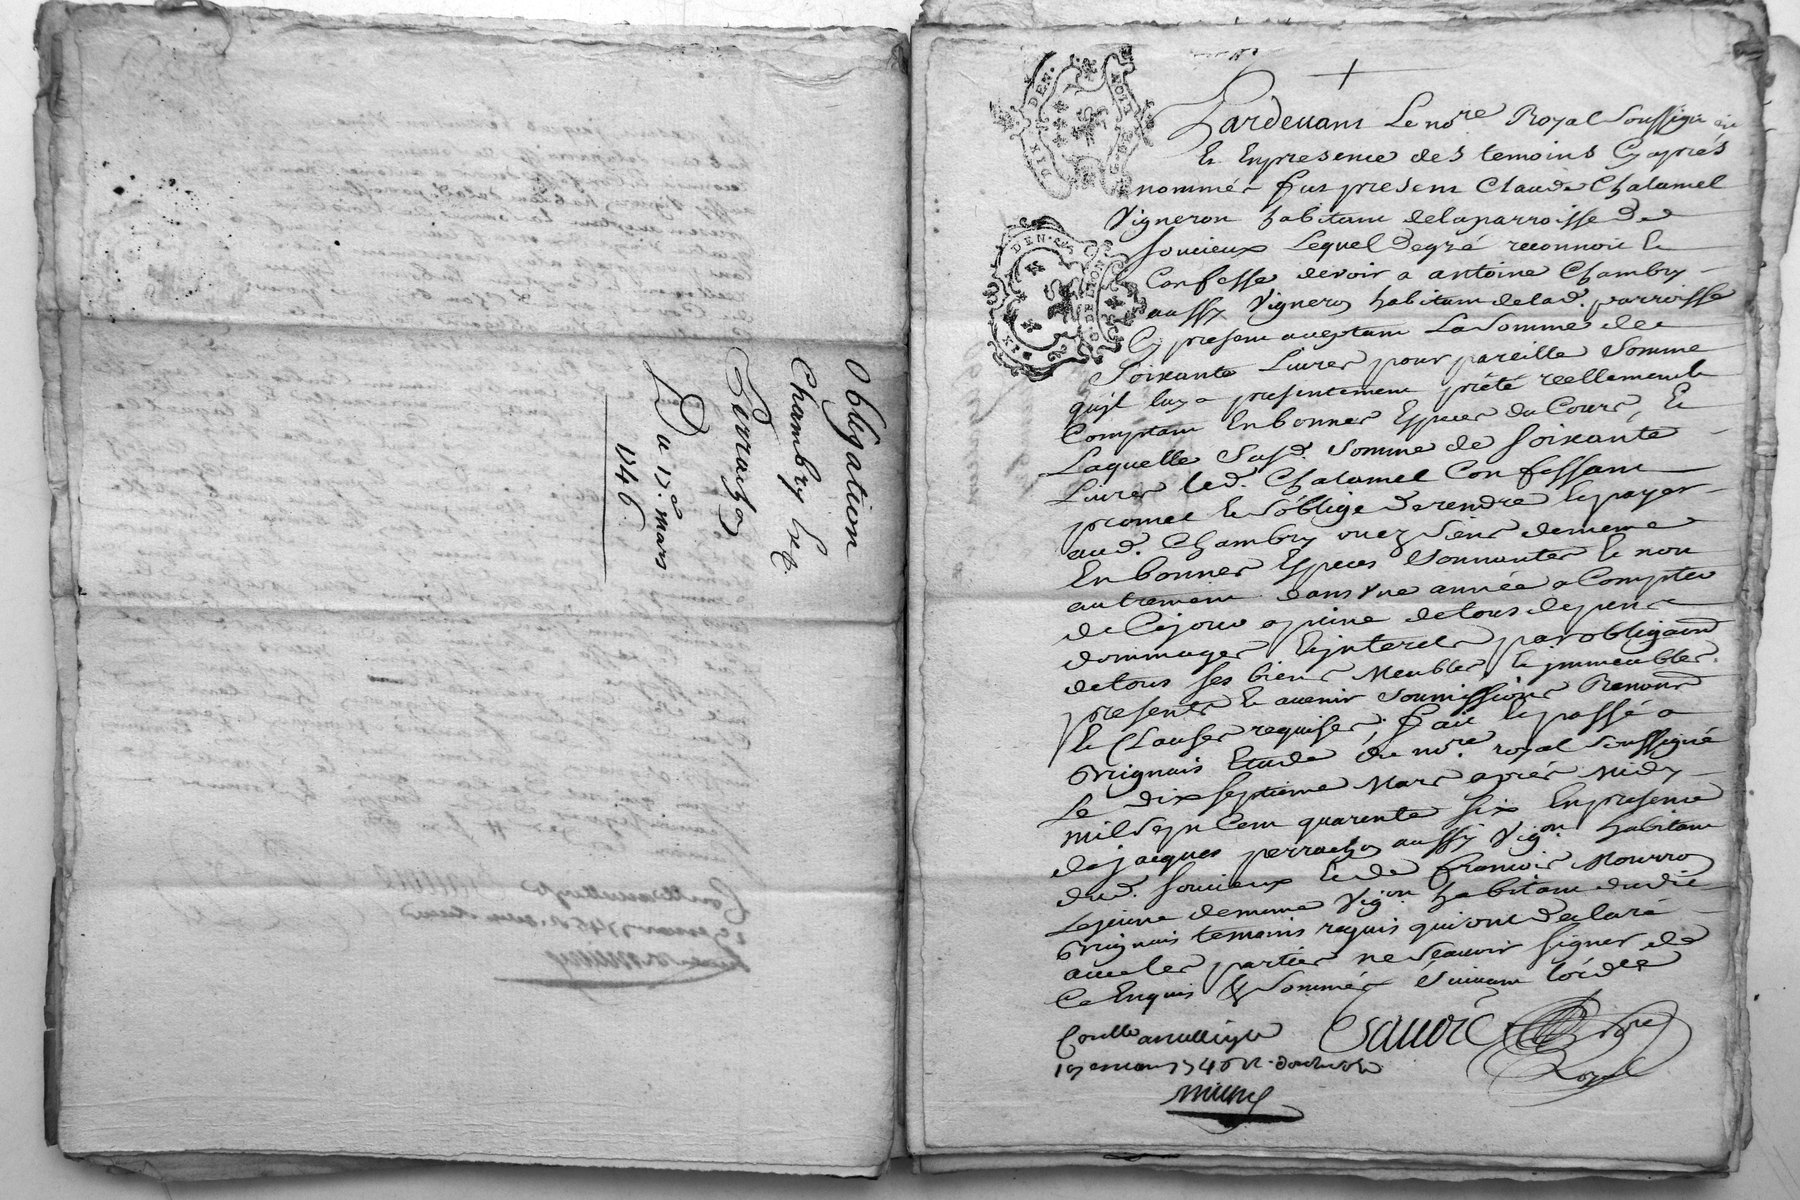 Obligation
Chambry &
Perrachon
Du 17.e mars
1746
DIX DEN.
G. DE LYON
DIX DEN.
G. DE LYON
Pardevant Le no.re Royal Soussigné
Et En presence des temoins Cy aprés
nommés fut present Claude Chalamel
Vigneron habitant delaparroisse de
Soucieux Lequel degré reconnoit Et
Confesse devoir a antoine Chambry
aussy Vigneron habitant delad. parroisse
Cy present acceptant La Somme de
Soixante Livres pour pareille Somme
quil luy a presentement prété reellement
Comptant En bonnes Especes du Cours, Et
Laquelle Susd. Somme de Soixante
Livres led. Chalamel Confessant
promet Et S'oblige de rendre Et payer
aud. Chambry ou ez Siens de meme
En bonnes Especes Sonnantes Et non
autrement dans une année a Compter
de Ce jour a peine de tous depens
dommages Et interets par obliga.on
de tous Ses biens Meubles Et immeubles
presents Et avenir Soumissions Renon.s
Et Clauses requises, fait Et passé a
Brignais Etude du no.re royal Soussigné
Le dix Septieme Mars aprés Midy
mil Sept Cent quarente Six En presence
de jacques perrachon aussy Vig.on habitant
dud. Soucieux Et de francois Mourro
Lejeune de meme Vig.on habitant dudit
Brignais temoins requis qui ont declaré
avec les parties ne Scavoir Signer de
Ce Enquis & Sommés Suivant lordce
no.re
Royal